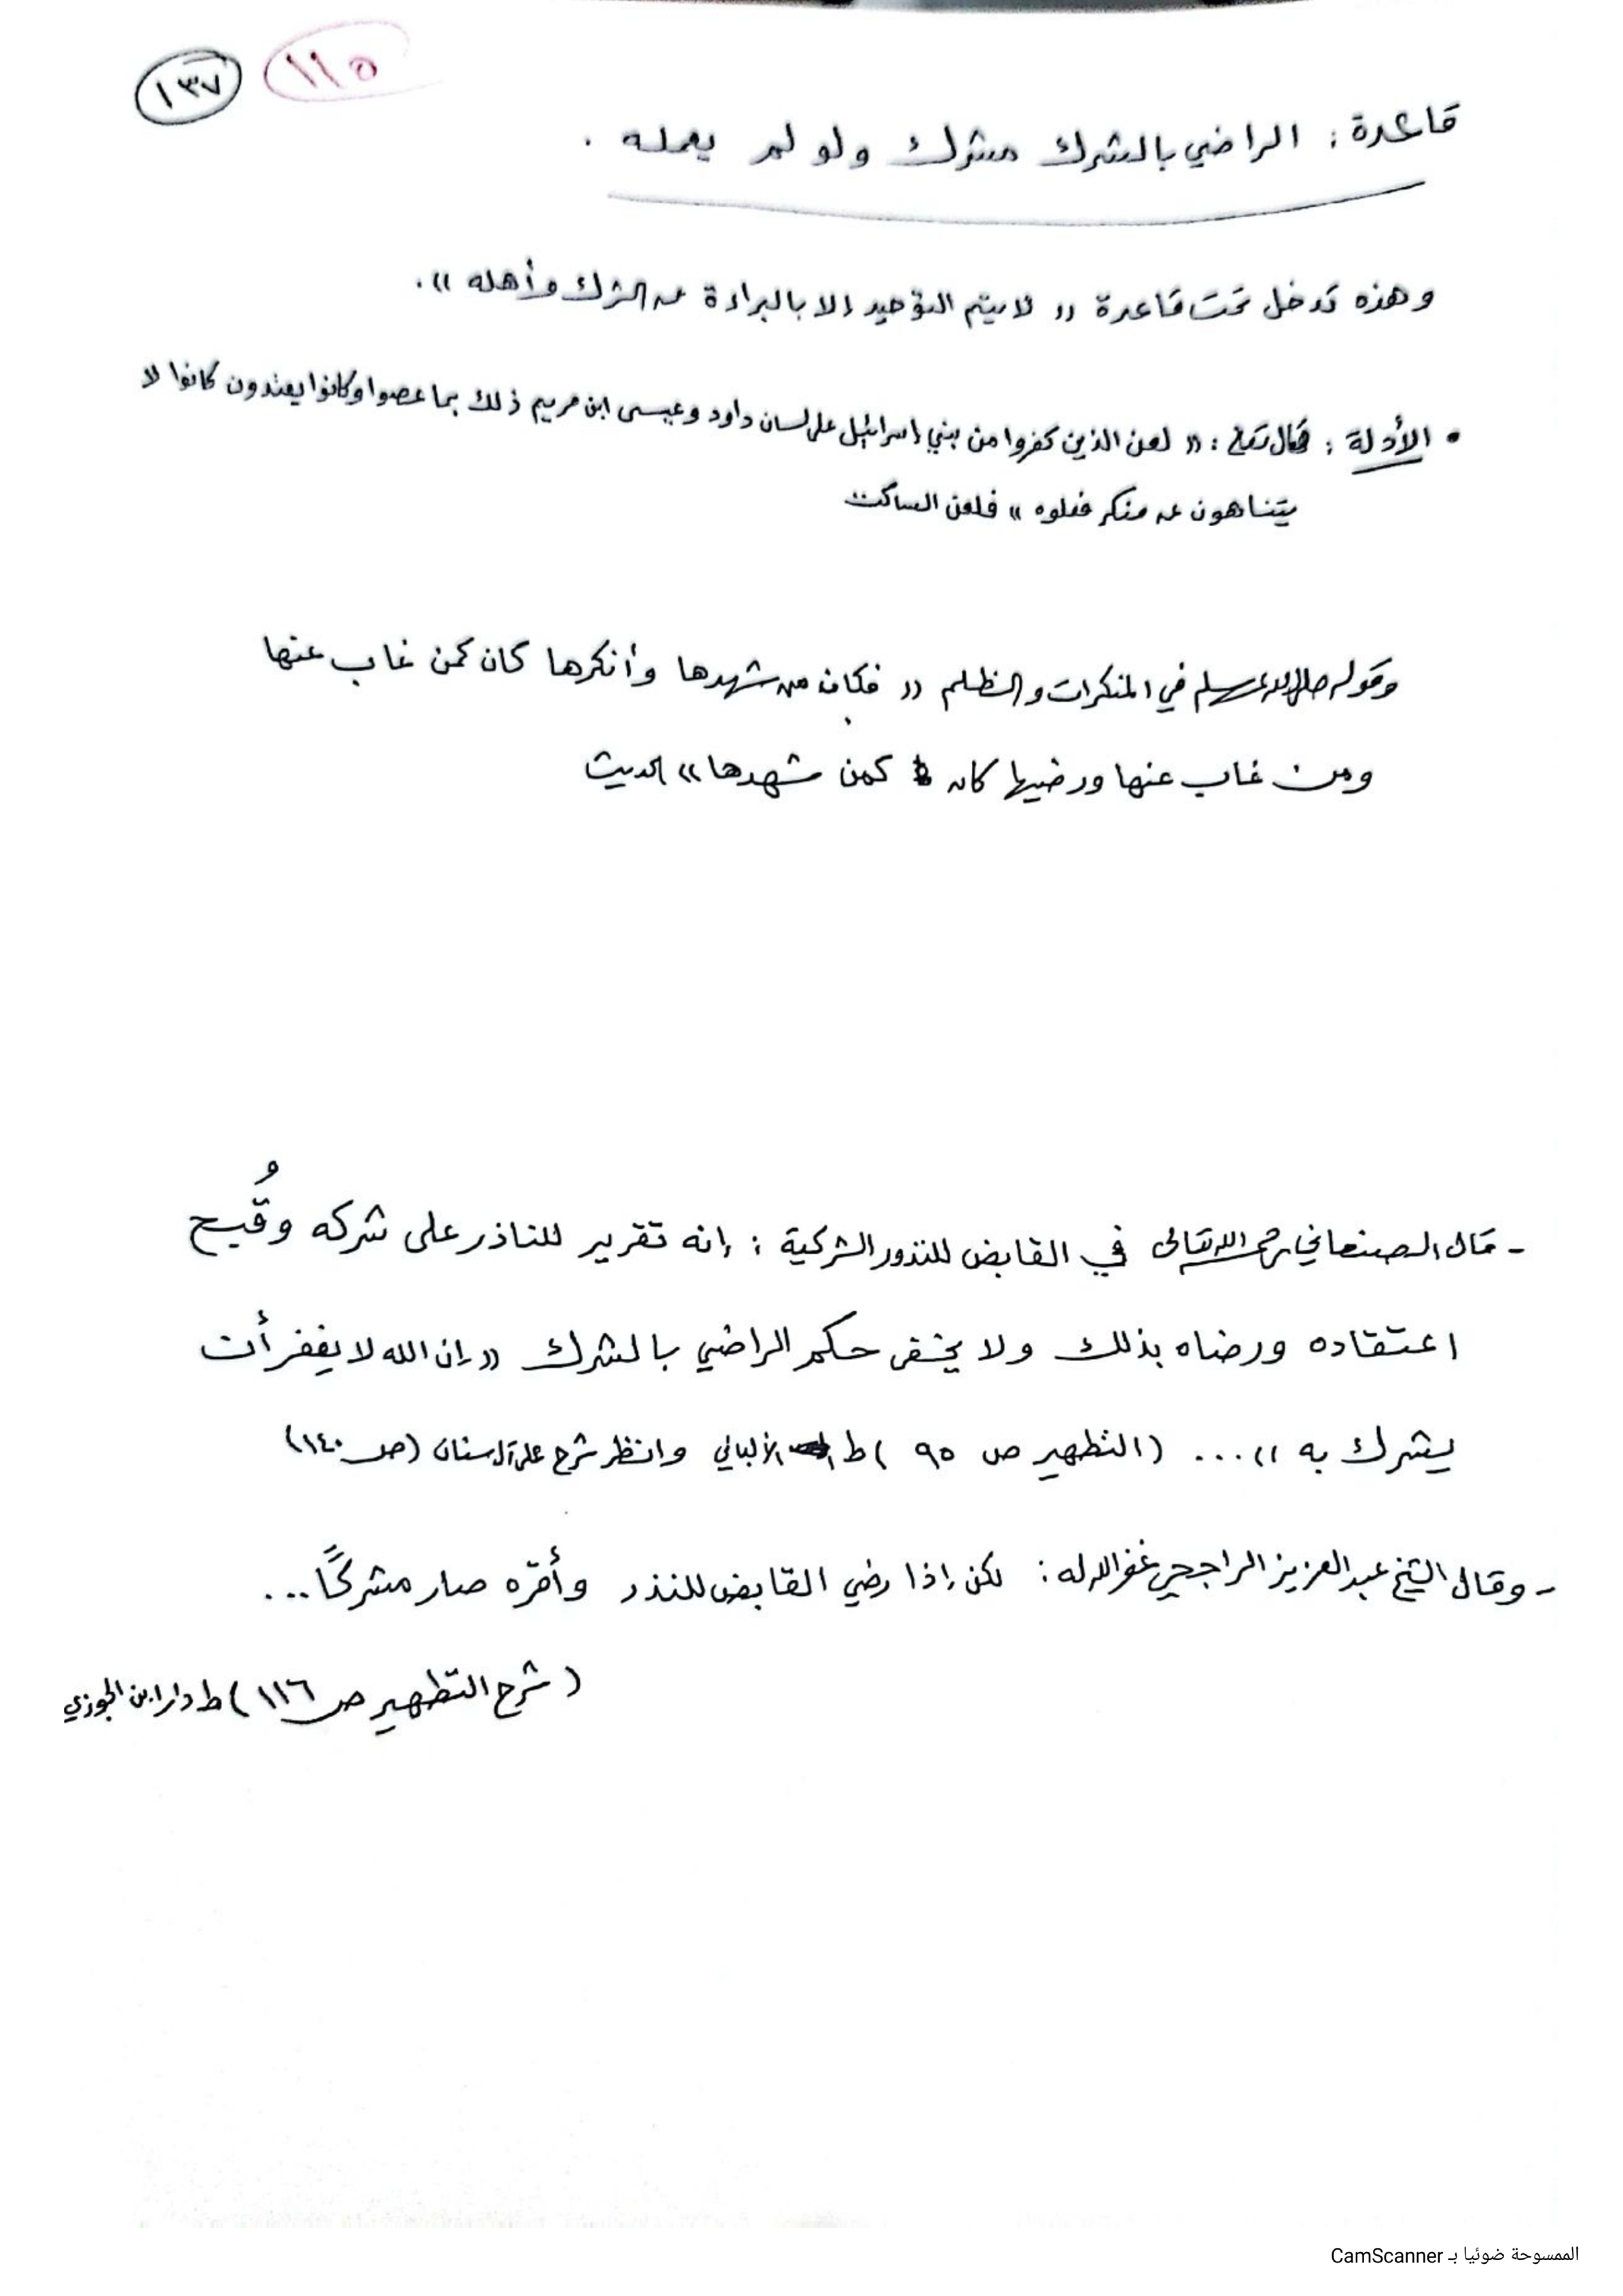 ١١٥ ١٣٧
قاعدة : الراضي بالشرك مشرك ولو لم يعمله .
وهذه تدخل تحت قاعدة (( لا يتم التوحيد إلا بالبراءة من الشرك وأهله )) .
• الأدلة : قال تعالى : (( لعن الذين كفروا من بني إسرائيل على لسان داود وعيسى ابن مريم ذلك بما عصوا وكانوا يعتدون كانوا لا
يتناهون عن منكر فعلوه )) فلعن الساكت
وقوله صلى الله عليه وسلم في المنكرات والظلم (( فكان من شهدها وأنكرها كان كمن غاب عنها
ومن غاب عنها ورضيها كان كمن شهدها )) الحديث
- قال الصنعاني رحمه الله تعالى في القابض للنذور الشركية : إنه تقرير للناذر على شركه وقُبح
اعتقاده ورضاه بذلك ولا يخفى حكم الراضي بالشرك (( إن الله لا يغفر أن
يشرك به )) ... (التطهير ص ٩٥ ) ط الألباني وانظر شرح على آل سنان (ص ١٤٠)
- وقال الشيخ عبد العزيز الراجحي غفر الله له : لكن إذا رضي القابض للنذر وأقرّه صار مشركًا ...
( شرح التطهير ص ١١٦ ) ط دار ابن الجوزي
الممسوحة ضوئيا بـ CamScanner